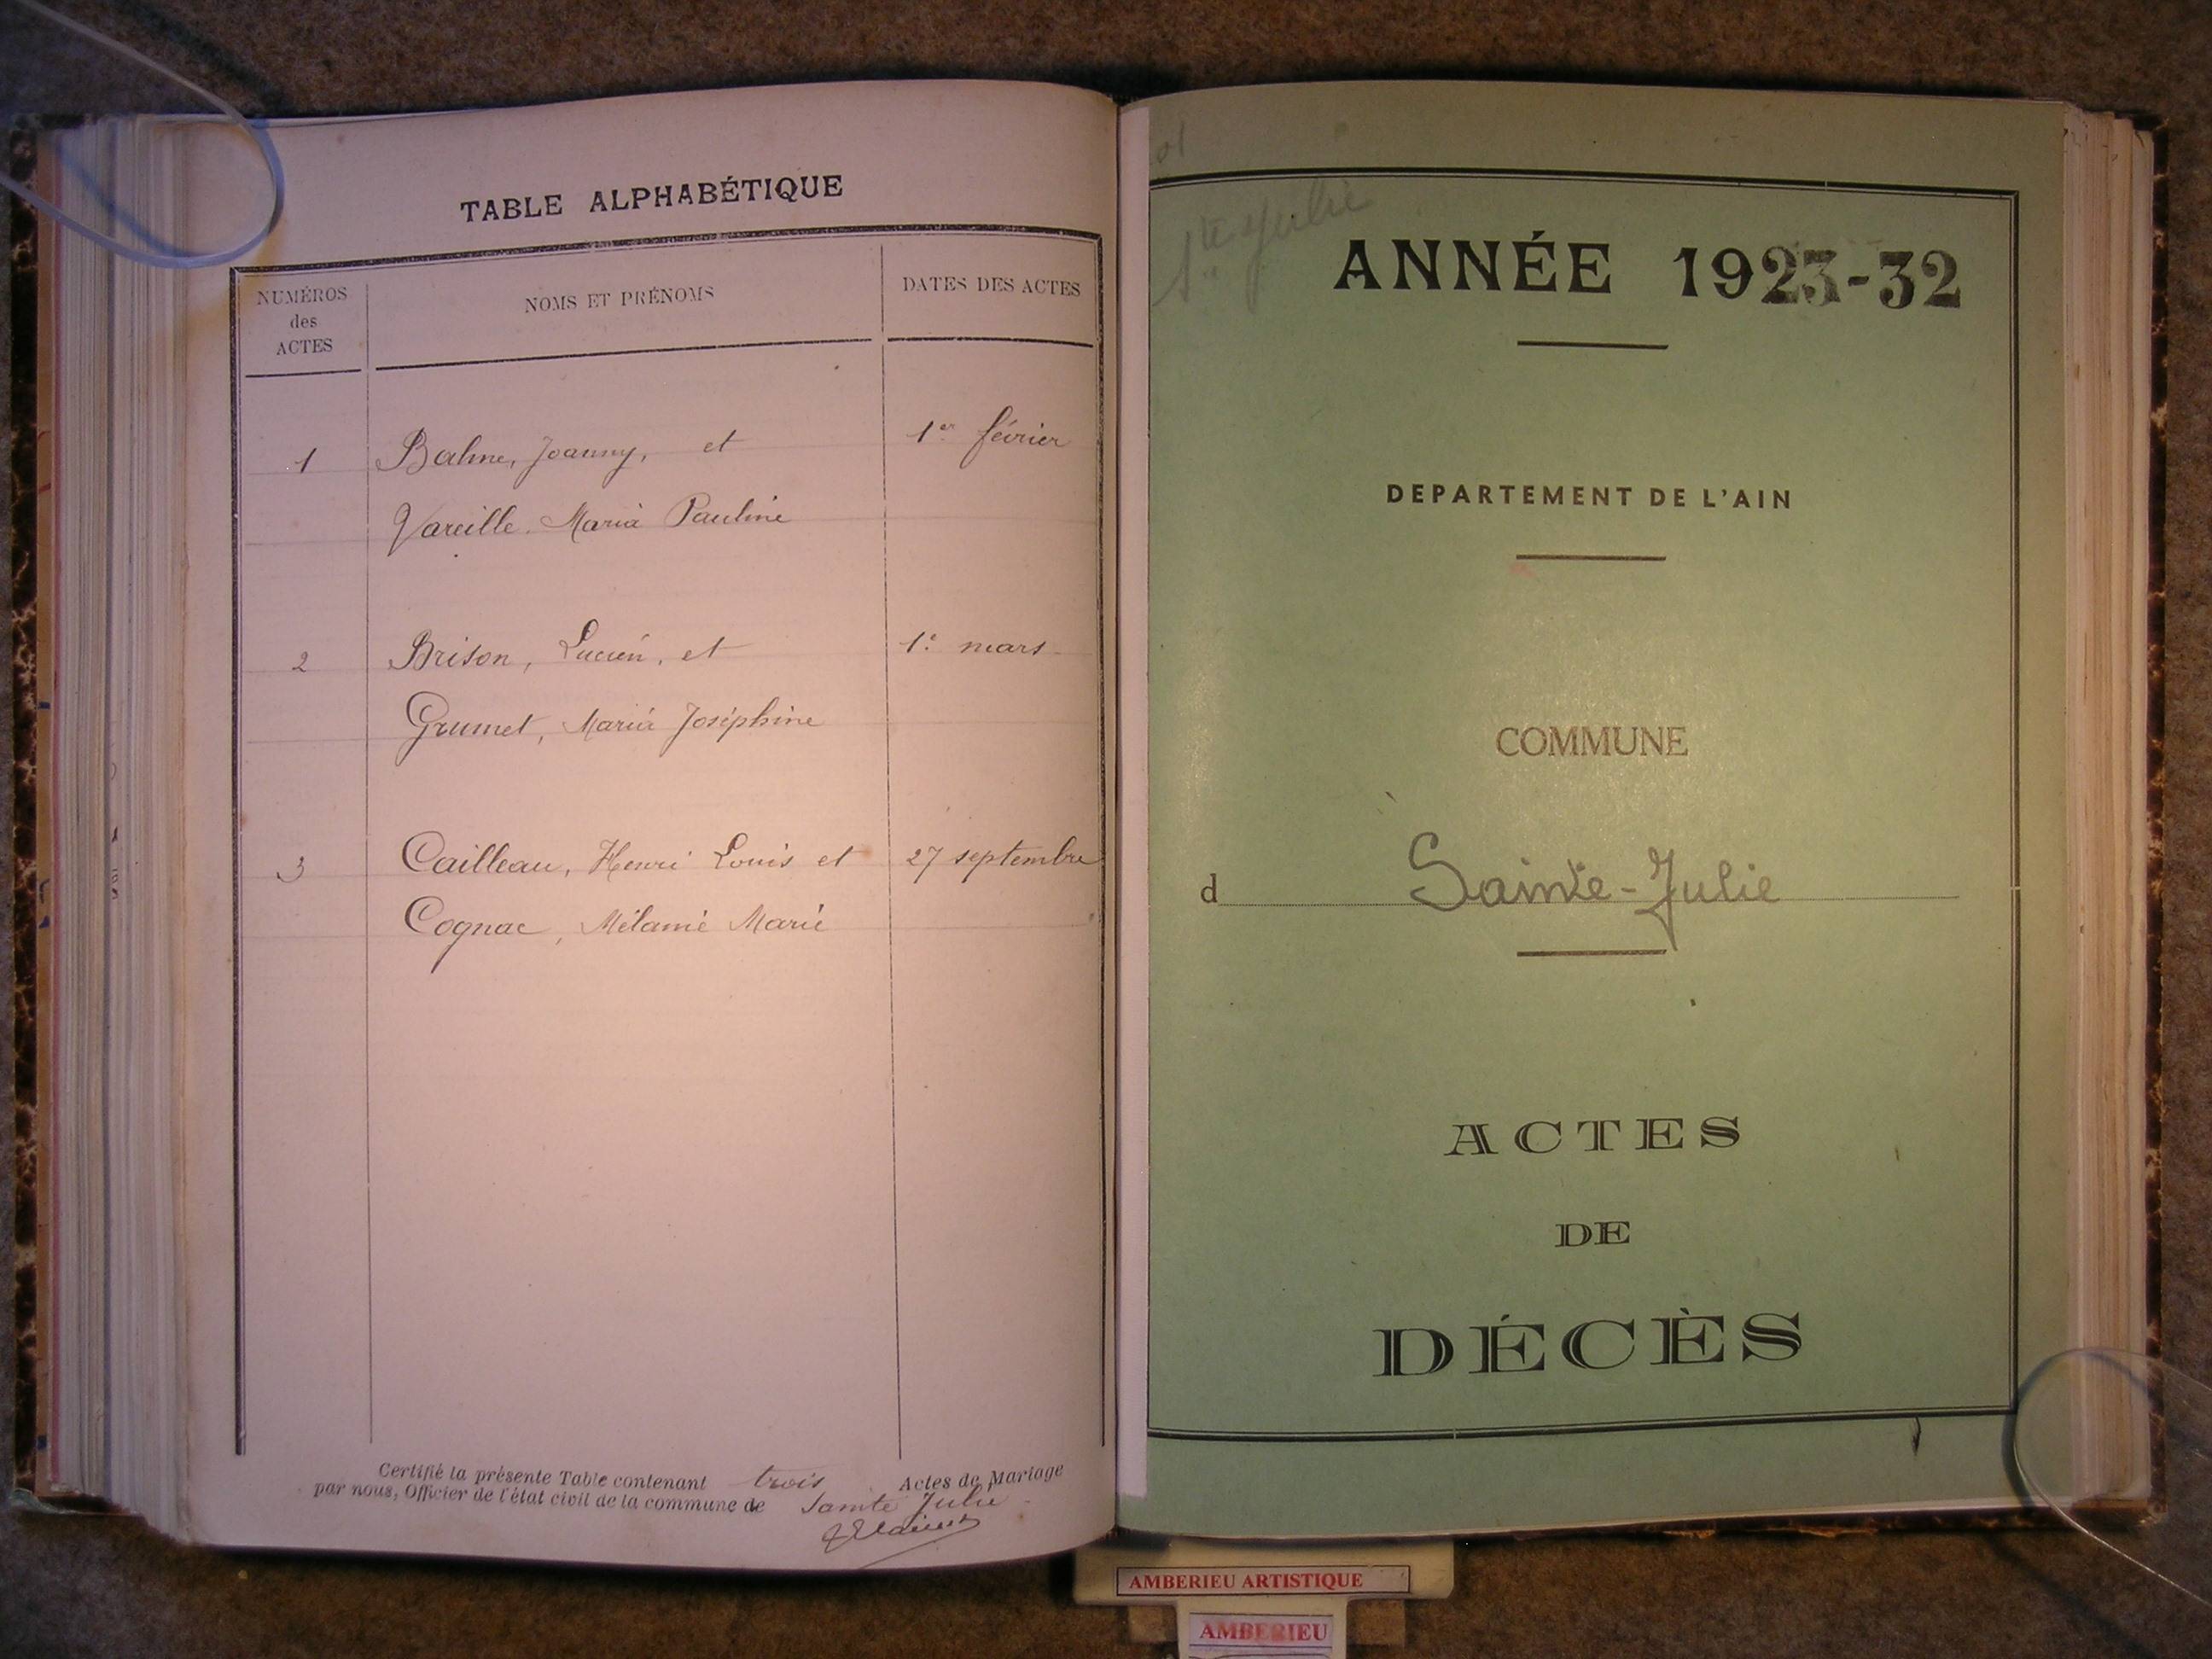 TABLE ALPHABÉTIQUE
NUMÉROS
des
ACTES
NOMS ET PRÉNOMS
DATES DES ACTES
1 Balme, Joanny, et 1er février
Vareille. Maria Pauline
2 Brison, Lucien, et 1e mars
Grumet, Maria Joséphine
3 Cailleau, Henri Louis et 27 septembre
Cognac, Mélanie Marie
Certifié la présente Table contenant trois Actes de Mariage
par nous, Officier de l'état civil de la commune de Sainte Julie
Ste Julie
ANNÉE 1923-32
DEPARTEMENT DE L'AIN
COMMUNE
d Sainte-Julie
ACTES
DE
DÉCÈS
AMBERIEU ARTISTIQUE
AMBERIEU